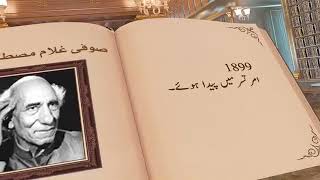 صوفی غلام مصط
1899
امر تسر میں پیدا ہوئے۔